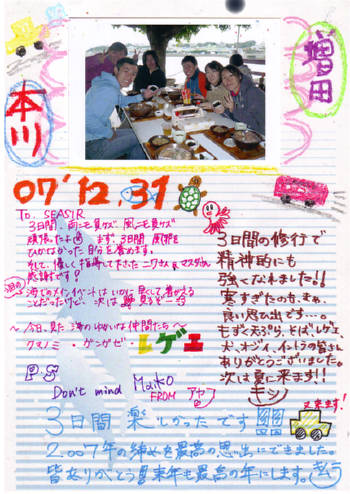 本川
増田
07' 12, 31
To. SEASIR
3日間、雨ニモ負ケズ、風ニモ負ケズ
頑張ったよ
まず、3日間 風邪を
ひかなかった自分を褒めます。
そして、優しく指導して下さった ニワさん & マスダさん
感謝です!
海でのメインイベントは いかに早くして着がえる
ことだったけど、次は
〜今日、見た 海のゆかいな仲間たち〜
クマノミ・ケラガゼ・レゲエ
P.S
Don't mind Maiko
FROM アヤ
3日間の修行で
精神的にも
強くなれました!!
寒すぎたのも、まぁ、
良い思ひ出です…。
もずく天ぷら、そば、レゲエ、
犬、オジィ、イントラの皆さん
ありがとうございました。
次は夏に来ます!!
キシ
又来ます!
3日間楽しかったです
2007年の締めを最高の思い出にできました。
皆ありがとう!来年も最高の年にします。